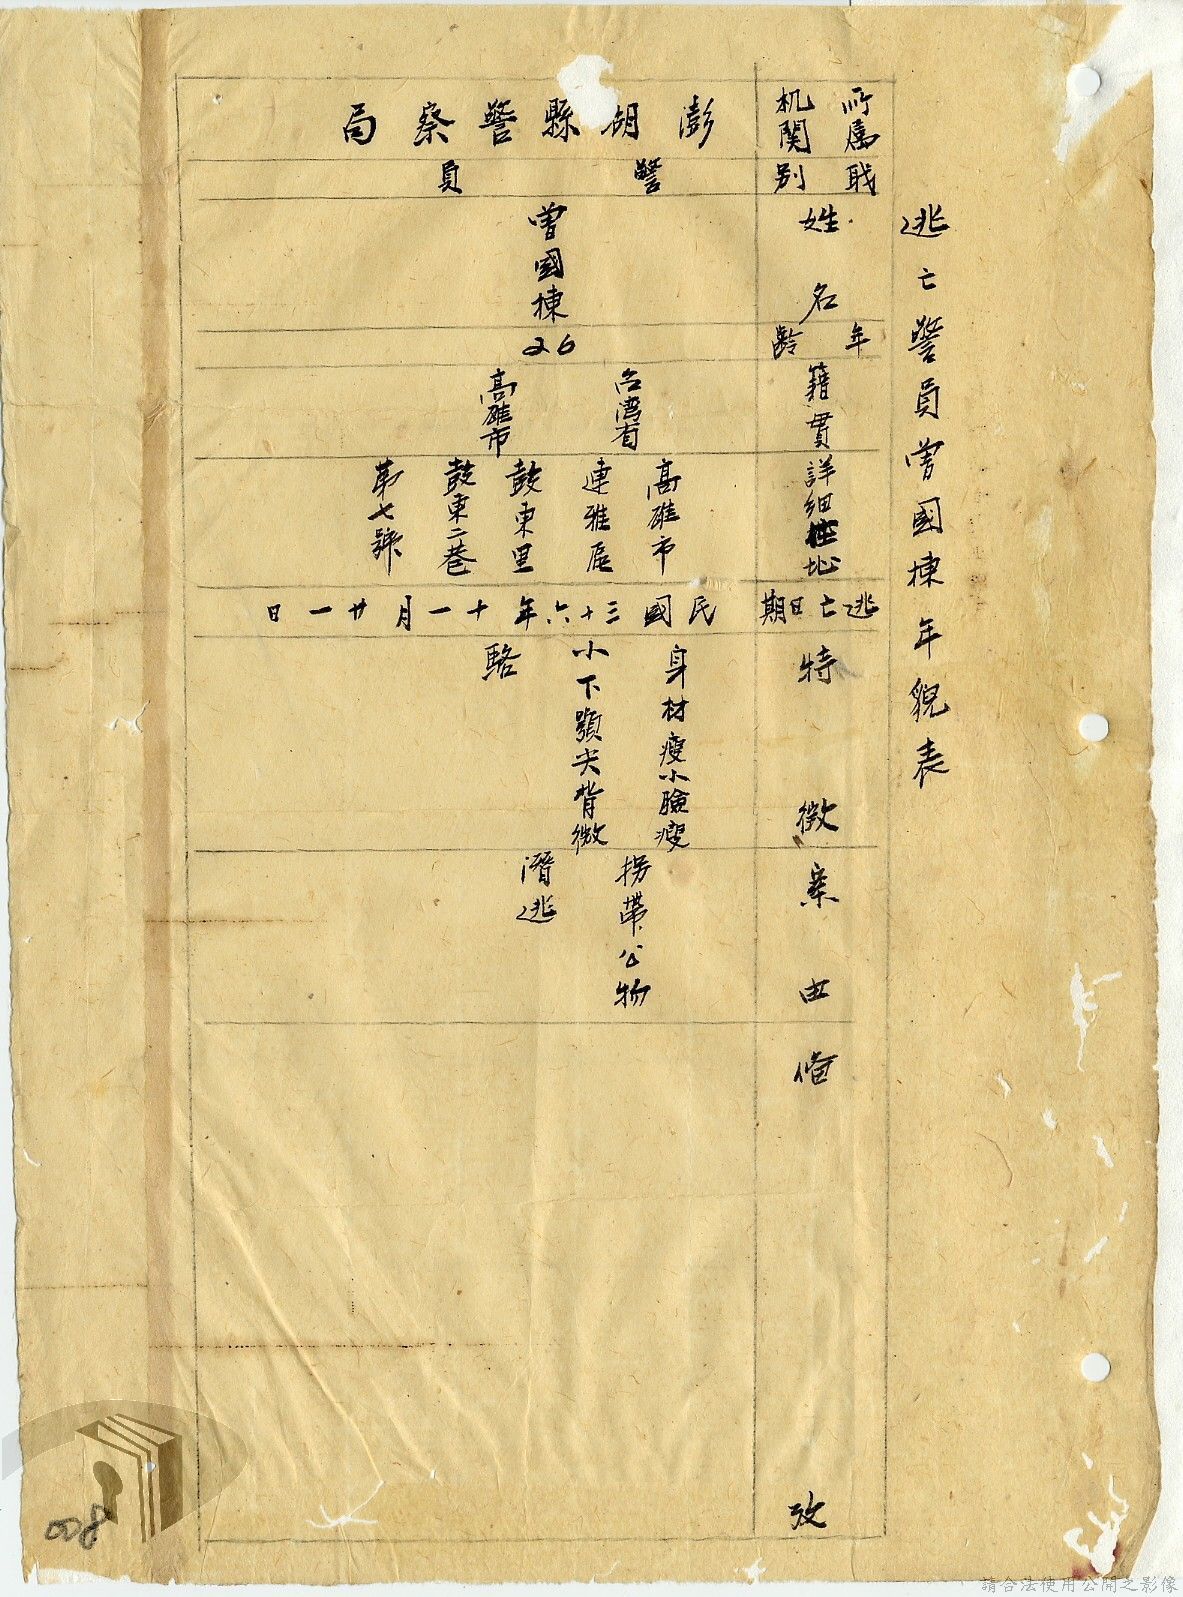 逃亡警員曾國棟年貌表
所属
机関
澎胡縣警察局
職
別
警員
姓名
曾國棟
年齡
26
籍貫
台湾省
高雄市
詳細住址
高雄市
連雅區
鼓東里
鼓東二巷
第七號
逃亡日期
民國三十六年十一月廿一日
特徵
身材瘦小臉瘦
小下顎尖背微
駱
案由
拐帶公物
潛逃
俻攷
008
請合法使用公開之影像